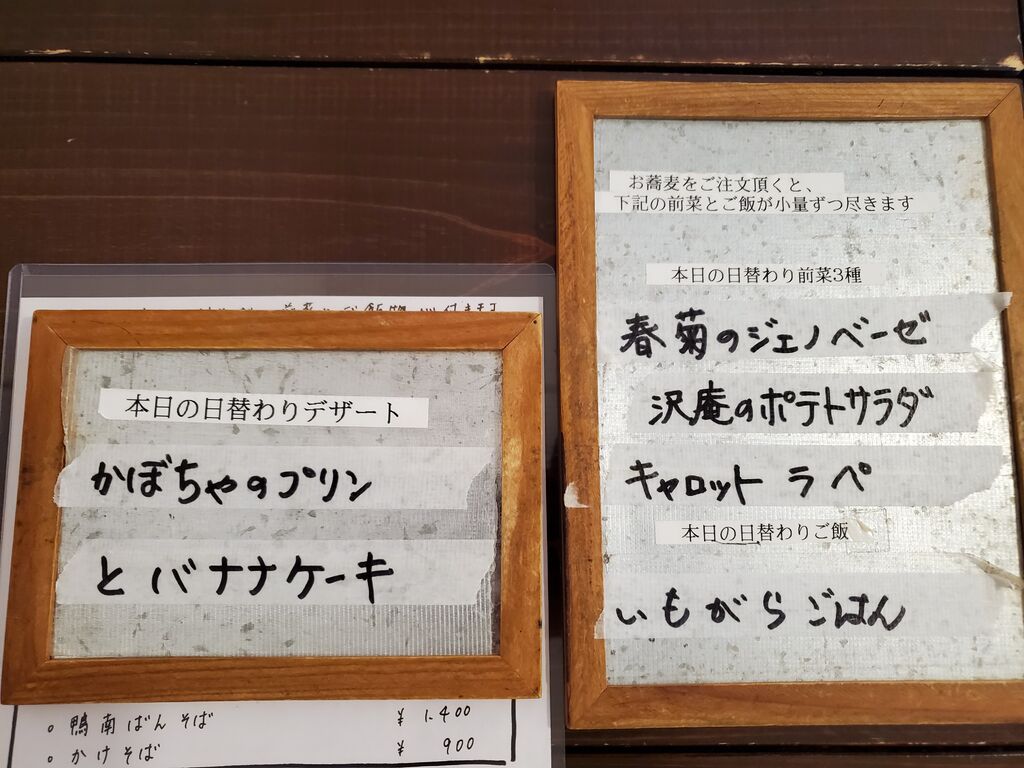 本日の日替わりデザート
かぼちゃのプリン
とバナナケーキ
。鴨南ばんそば ¥ 1.400
。かけそば ¥ 900
お蕎麦をご注文頂くと、
下記の前菜とご飯が小量ずつ尽きます
本日の日替わり前菜3種
春菊のジェノベーゼ
沢庵のポテトサラダ
キャロット ラペ
本日の日替わりご飯
いもがらごはん